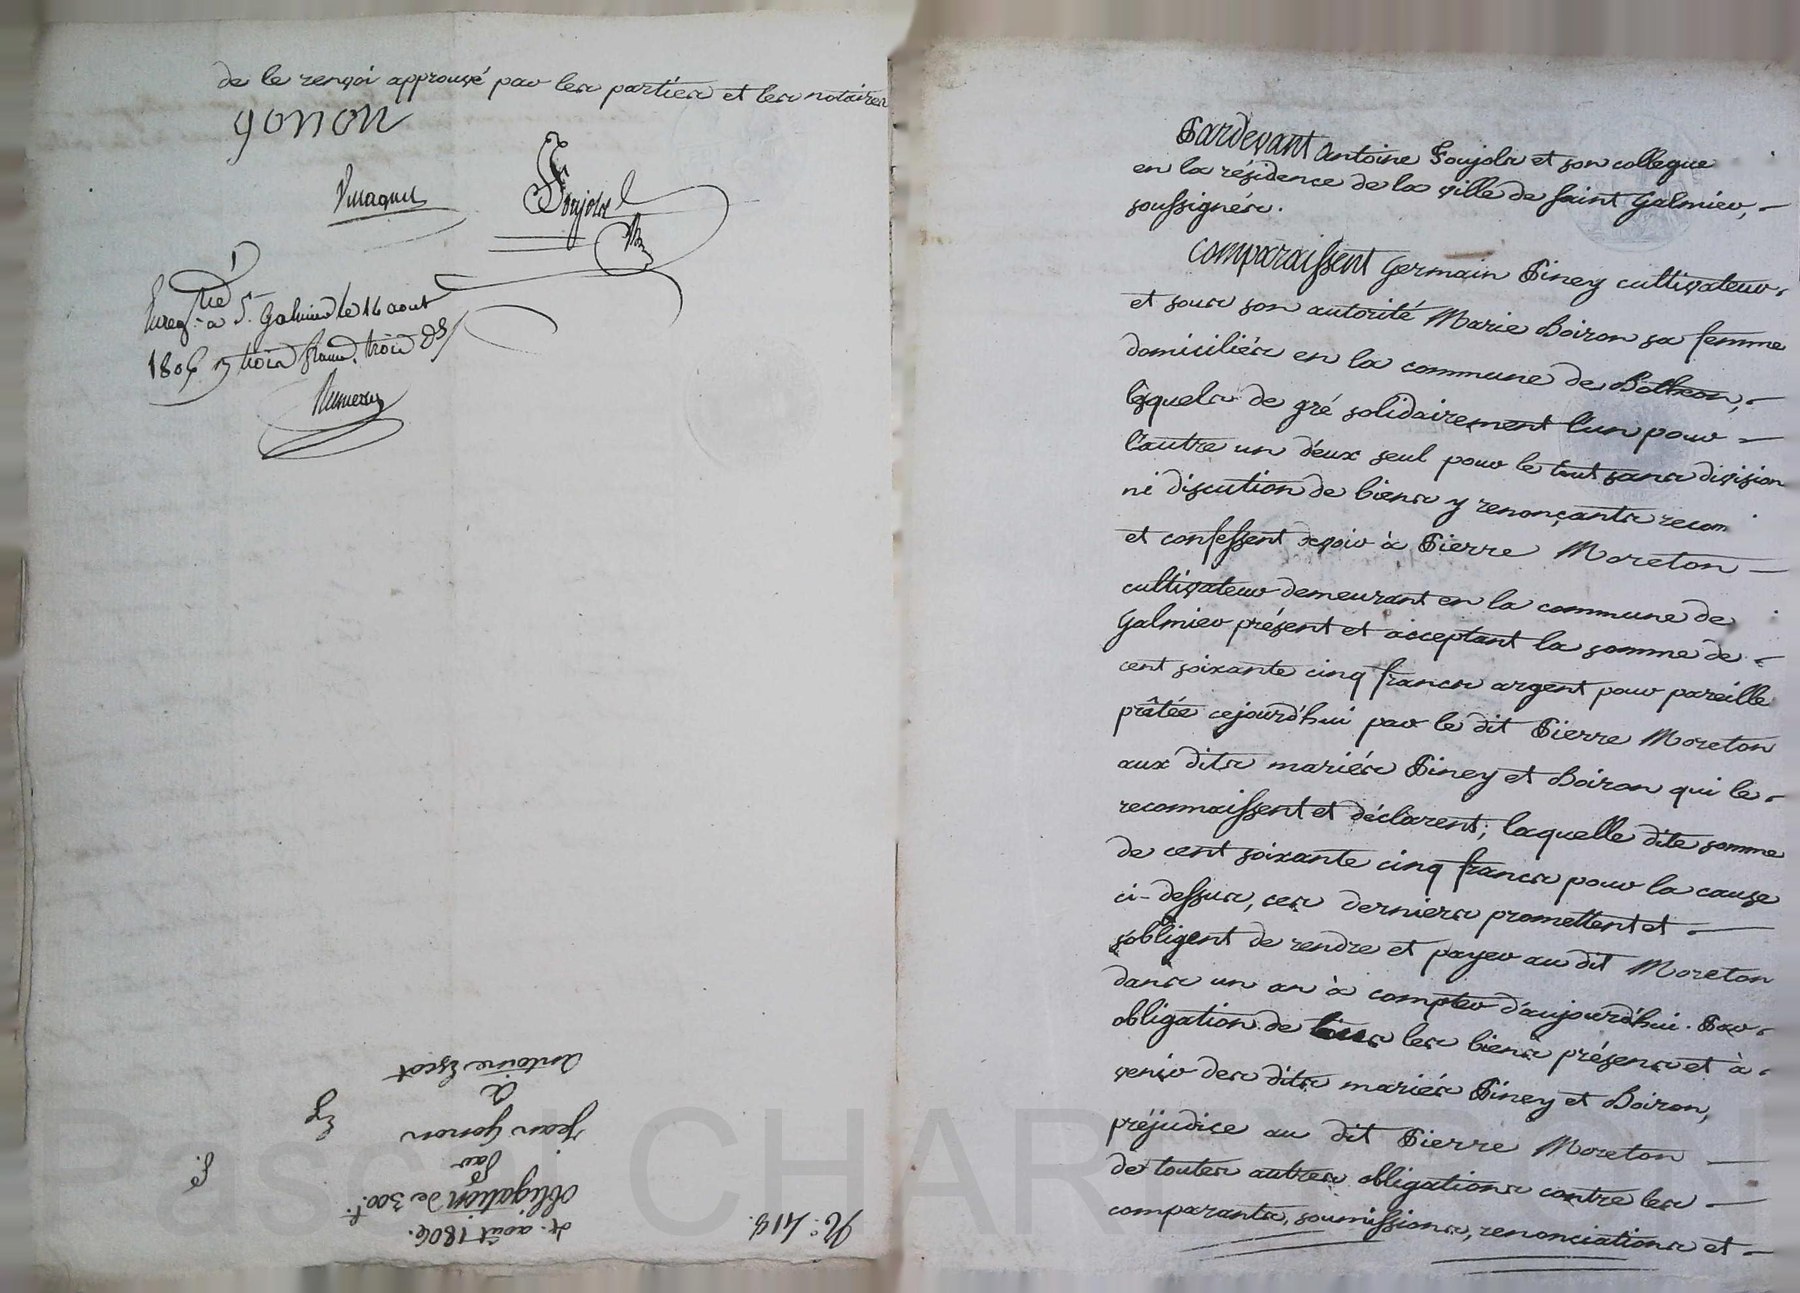 de le renvoi approuvé par les parties et les notaires
gonon
Foujols
Enreg.tré à St. Galmier le 14 aout
1806 trois francs trois
antoine Escot
à
jean gonon
par
obligation de 300f.
4. août 1806.
N°. 418.
Pardevant Antoine Foujols et son collegue
en la résidence de la ville de Saint Galmier,
soussignés.
Comparaissent Germain Piney cultivateur,
et sous son autorité Marie Boiron sa femme
domiciliés en la commune de Bothéon,
lesquels de gré solidairement l'un pour
l'autre un d'eux seul pour le tout sans division
ni discution de biens y renonçants recon
et confessent devoir à Pierre Moreton
cultivateur demeurant en la commune de
Galmier présent et acceptant la somme de
cent soixante cinq francs argent pour pareille
prâtée cejourd'hui par le dit Pierre Moreton
aux dits mariés Piney et Boiron qui le
reconnaissent et déclarent; laquelle dite somme
de cent soixante cinq francs pour la cause
ci-dessus, ces derniers promettent et
s'obligent de rendre et payer au dit Moreton
dans un an à compter d'aujourd'hui. Par
obligation de tous les biens présens et à
venir des dits mariés Piney et Boiron,
préjudice au dit Pierre Moreton
de toutes autres obligations contre les
comparants, soumissions, renonciations et
Pascal CHARTYRON